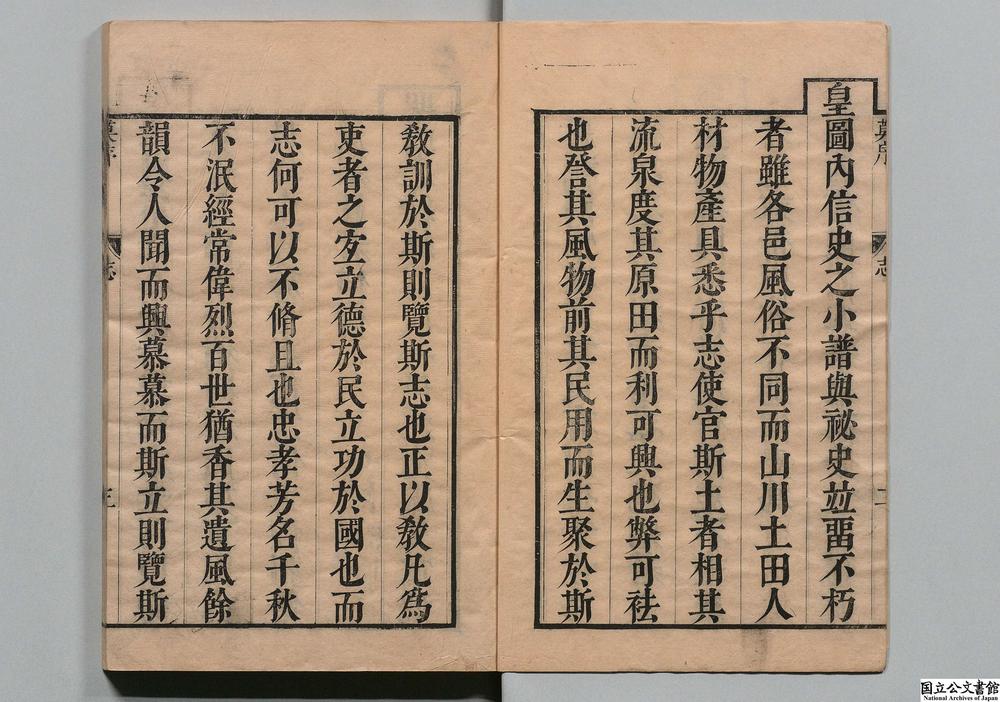 皇圖內信史之小譜與祕史竝畱不朽
者雖各邑風俗不同而山川土田人
材物產具悉乎志使官斯土者相其
流泉度其原田而利可興也弊可祛
也詧其風物前其民用而生聚於斯
教訓於斯則覽斯志也正以教凡爲
吏者之㝎立德於民立功於國也而
志何可以不脩且也忠孝芳名千秋
不泯經常偉烈百世猶香其遺風餘
韻令人聞而興慕慕而斯立則覽斯
志
志
国立公文書館
National Archives of Japan